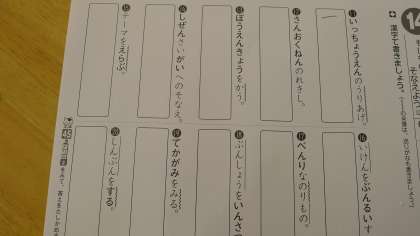 14
漢字で書きましょう。
⑪いっちょうえんのうりあげ。
一
⑫さんおくねんのれきし。
⑬ぼうえんきょうをかう。
⑭しぜんさいがいへのそなえ。
⑮テーマをえらぶ。
⑯いけんをぶんるいす
⑰べんりなのりもの。
⑱ぶんしょうをいんさつ
⑲てかがみをみる。
⑳しんぶんをする。